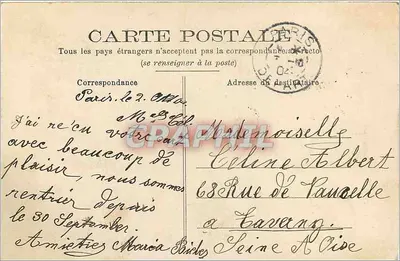 CARTE POSTALE
Tous les pays étrangers n'acceptent pas la correspondance au recto
(se renseigner à la poste)
PARIS
DEPART
Correspondance
Adresse du destinataire
Paris. le 2.
J'ai re'cu votre
avec beaucoup de
plaisir, nous sommes
rentrier depuis
le 30 September.
Amieties Maria
CARTHAPHILIE
Mademoiselle
Celine Albert
68 Rue de Vaucelle
a Taverny.
Seine A Oise